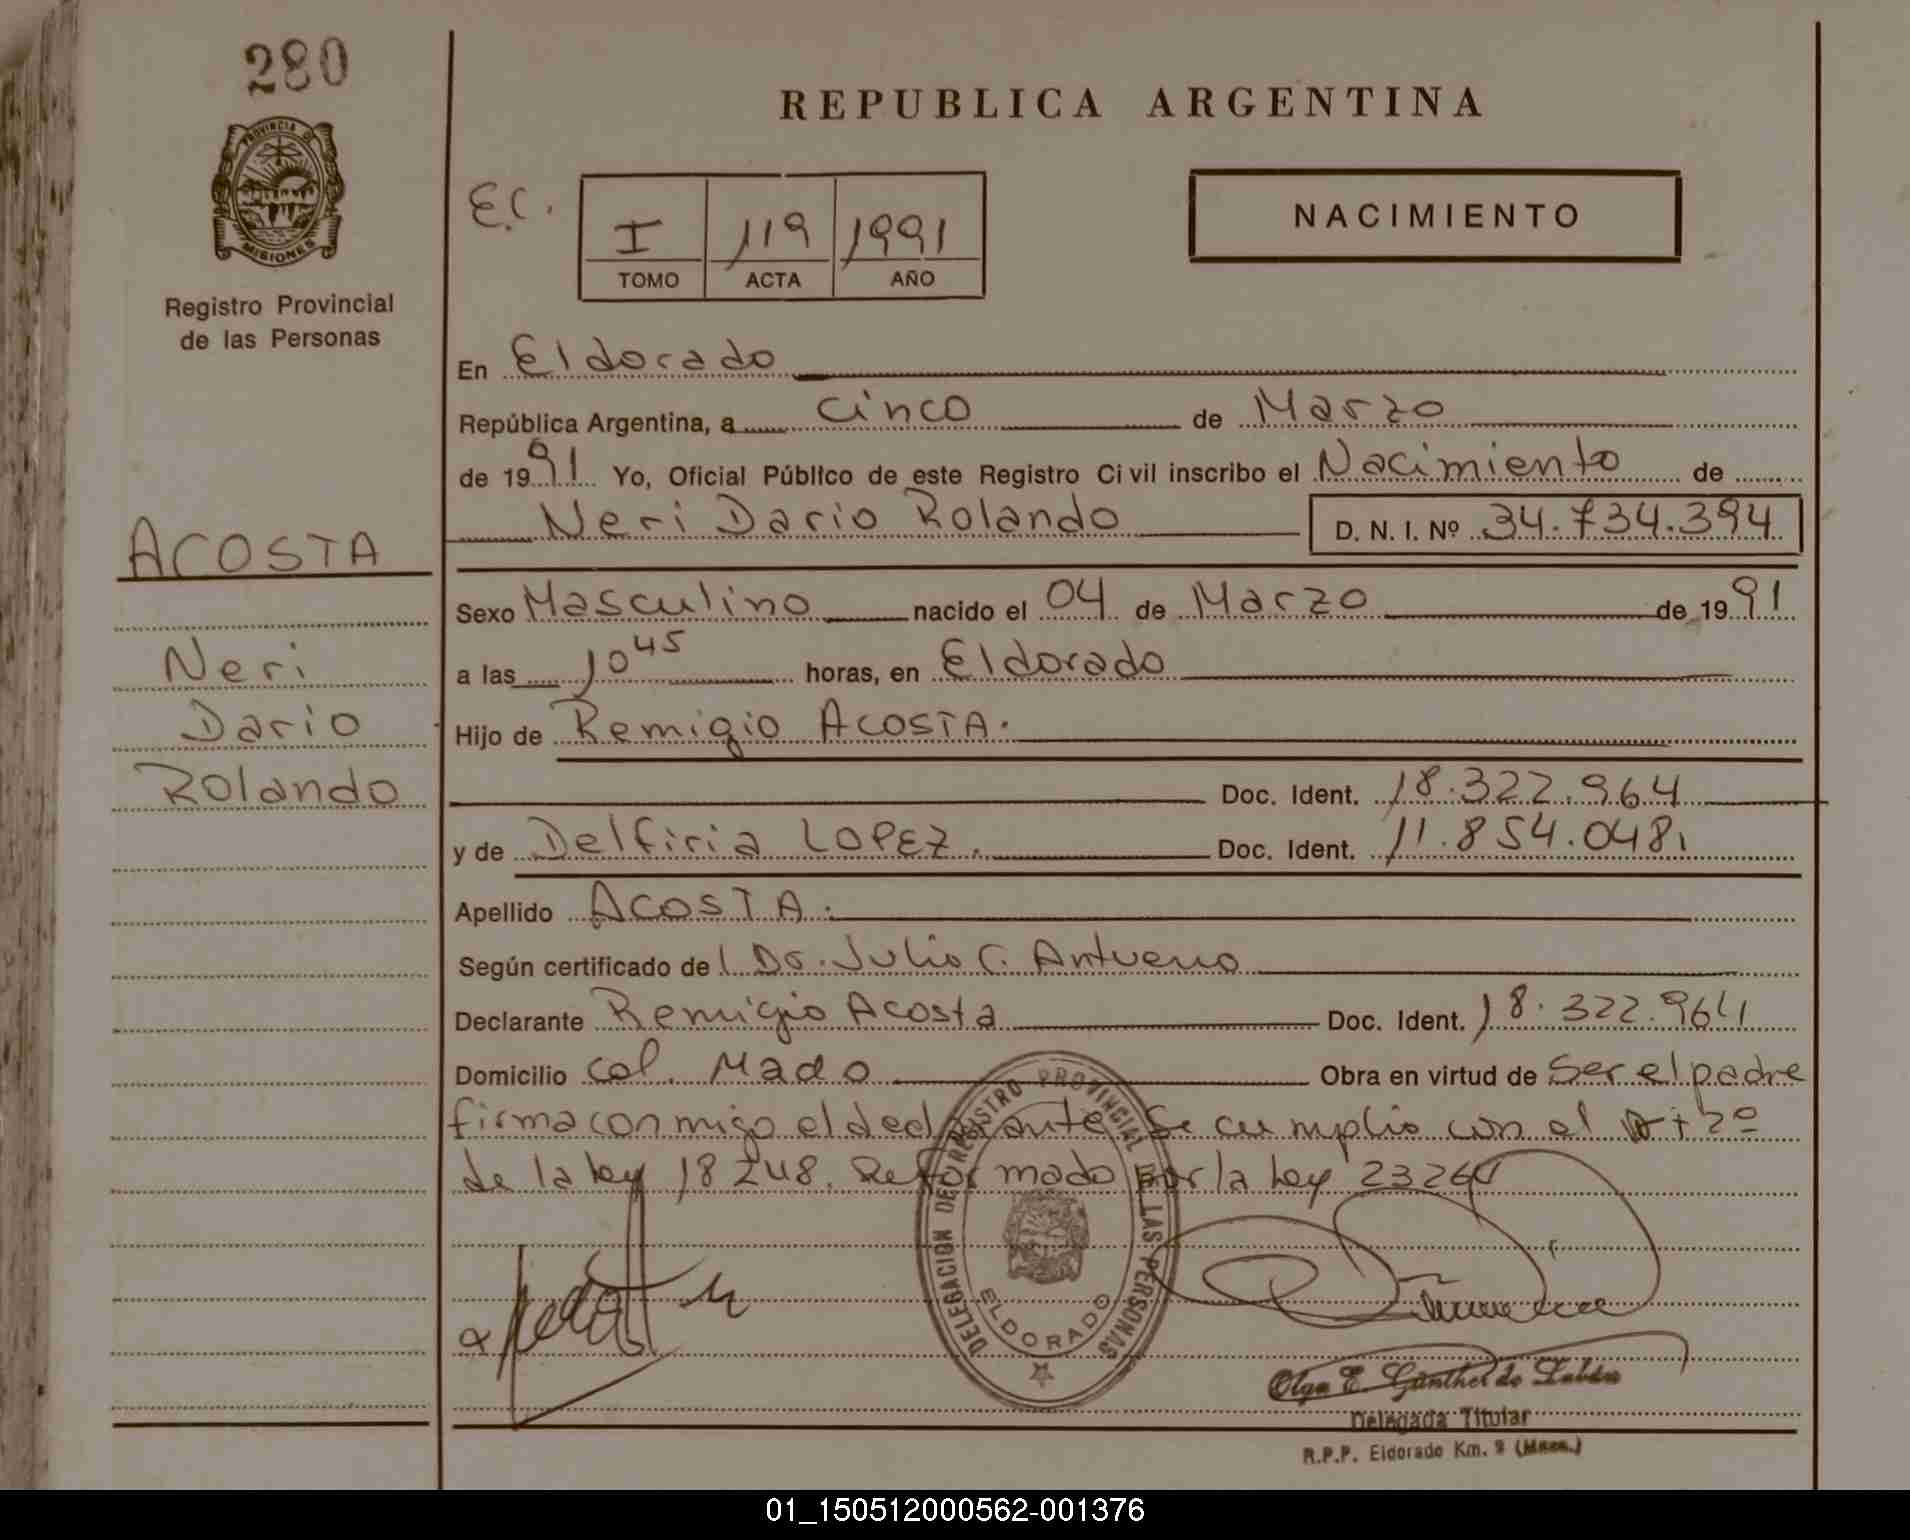 280
PROVINCIA D
MISIONES
Registro Provincial
de las Personas
REPUBLICA ARGENTINA
E.C.
I 119 1991
TOMO ACTA AÑO
NACIMIENTO
En Eldorado
República Argentina, a cinco de Marzo
de 1991 Yo, Oficial Público de este Registro Civil inscribo el Nacimiento de
Neri Dario Rolando D. N. I. Nº 34.734.394
ACOSTA
Neri
Dario
Rolando
Sexo Masculino nacido el 04 de Marzo de 1991
a las 10 45 horas, en Eldorado
Hijo de Remigio ACOSTA.
Doc. Ident. 18.322.964
y de Delfiria LOPEZ. Doc. Ident. 11.854.048
Apellido ACOSTA.
Según certificado del Dr. Julio C.
Declarante Remigio Acosta Doc. Ident. 18.322.964
Domicilio Col. Mado Obra en virtud de Ser el padre
firma conmigo el declarante Se cumplio con el Art 2º
de la ley 18248. Reformado por la Ley 23264
DELEGACION DEL REGISTRO PROVINCIAL DE LAS PERSONAS
ELDORADO
Olga E. Günther de
Delegada Titular
R.P.P. Eldorado Km. 9 (Mnes.)
01_150512000562-001376